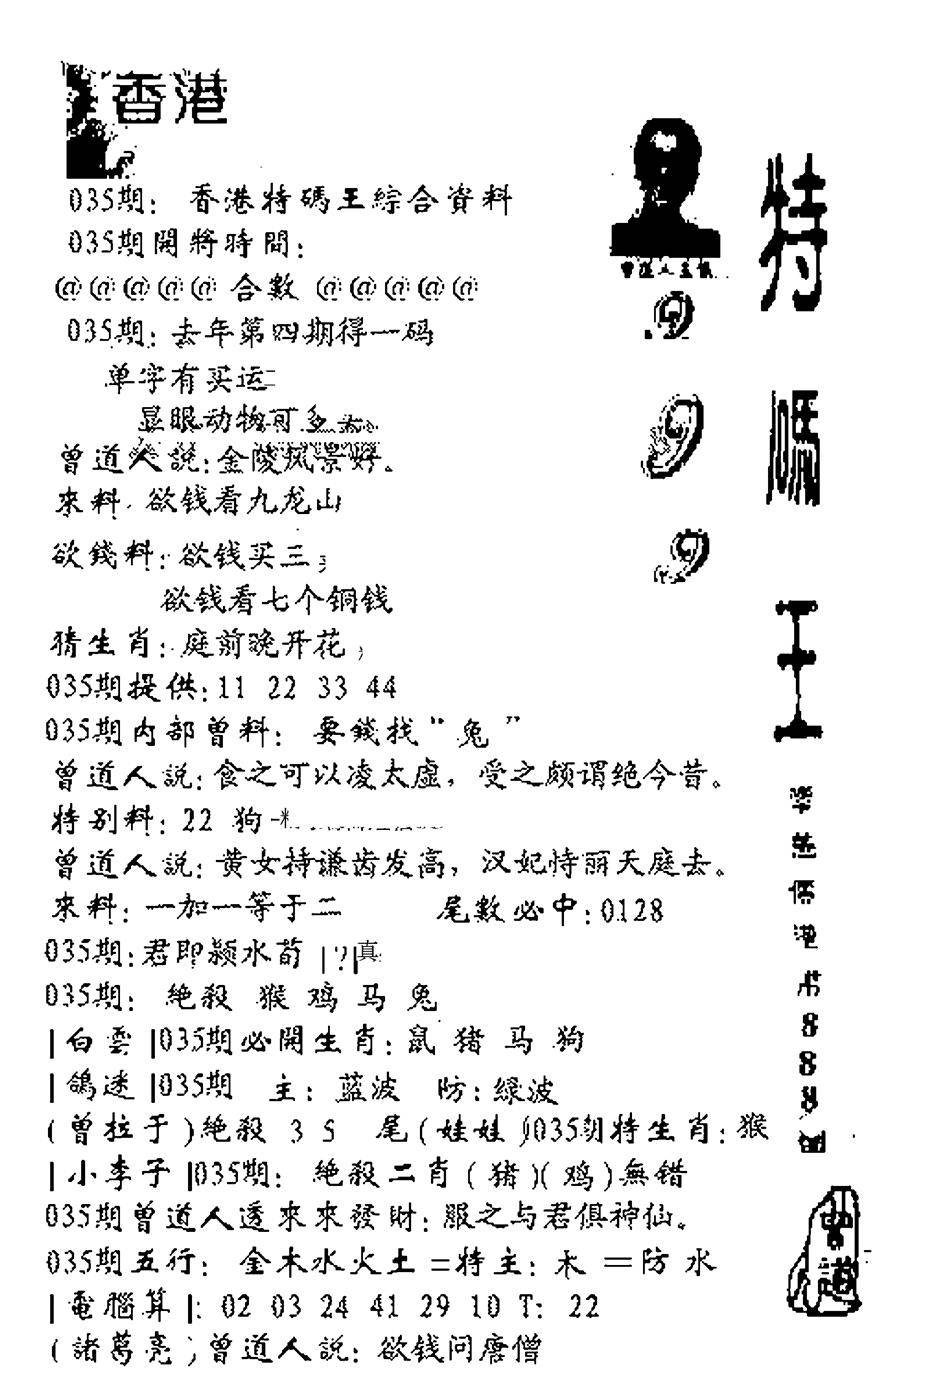 香港
035期: 香港特碼王綜合資料
035期開將時間:
@@@@@ 合數 @@@@@
035期: 去年第四期得一码
单字有买运二
显眼动物可多
曾道人説:金陵风景好。
來料: 欲钱看九龙山
欲錢料: 欲钱买三;
欲钱看七个铜钱
猜生肖: 庭前晚开花;
035期提供:11 22 33 44
035期内部曾料: 要錢找"兔"
曾道人説:食之可以凌太虚，受之颇谓绝今昔。
特别料: 22 狗
曾道人説: 黄女持谦齿发高，汉妃恃丽天庭去。
來料: 一加一等于二 尾數必中:0128
035期:君即颍水荀 |?|真
035期: 絶殺 猴 鸡 马 兔
|白雲|035期必開生肖:鼠 猪 马 狗
|鴿迷|035期 主: 蓝波 防:绿波
(曾拉于)絶殺 3 5 尾(娃娃)035期特生肖:猴
|小李子|035期: 絶殺二肖(猪)(鸡)無错
035期曾道人透來來發財:服之与君俱神仙。
035期五行: 金木水火土=特主: 木 =防 水
|電腦算|: 02 03 24 41 29 10 T: 22
(諸葛亮)曾道人説: 欲钱问唐僧
曾道人玄機
特
碼
王
港
8
8
8
曾道